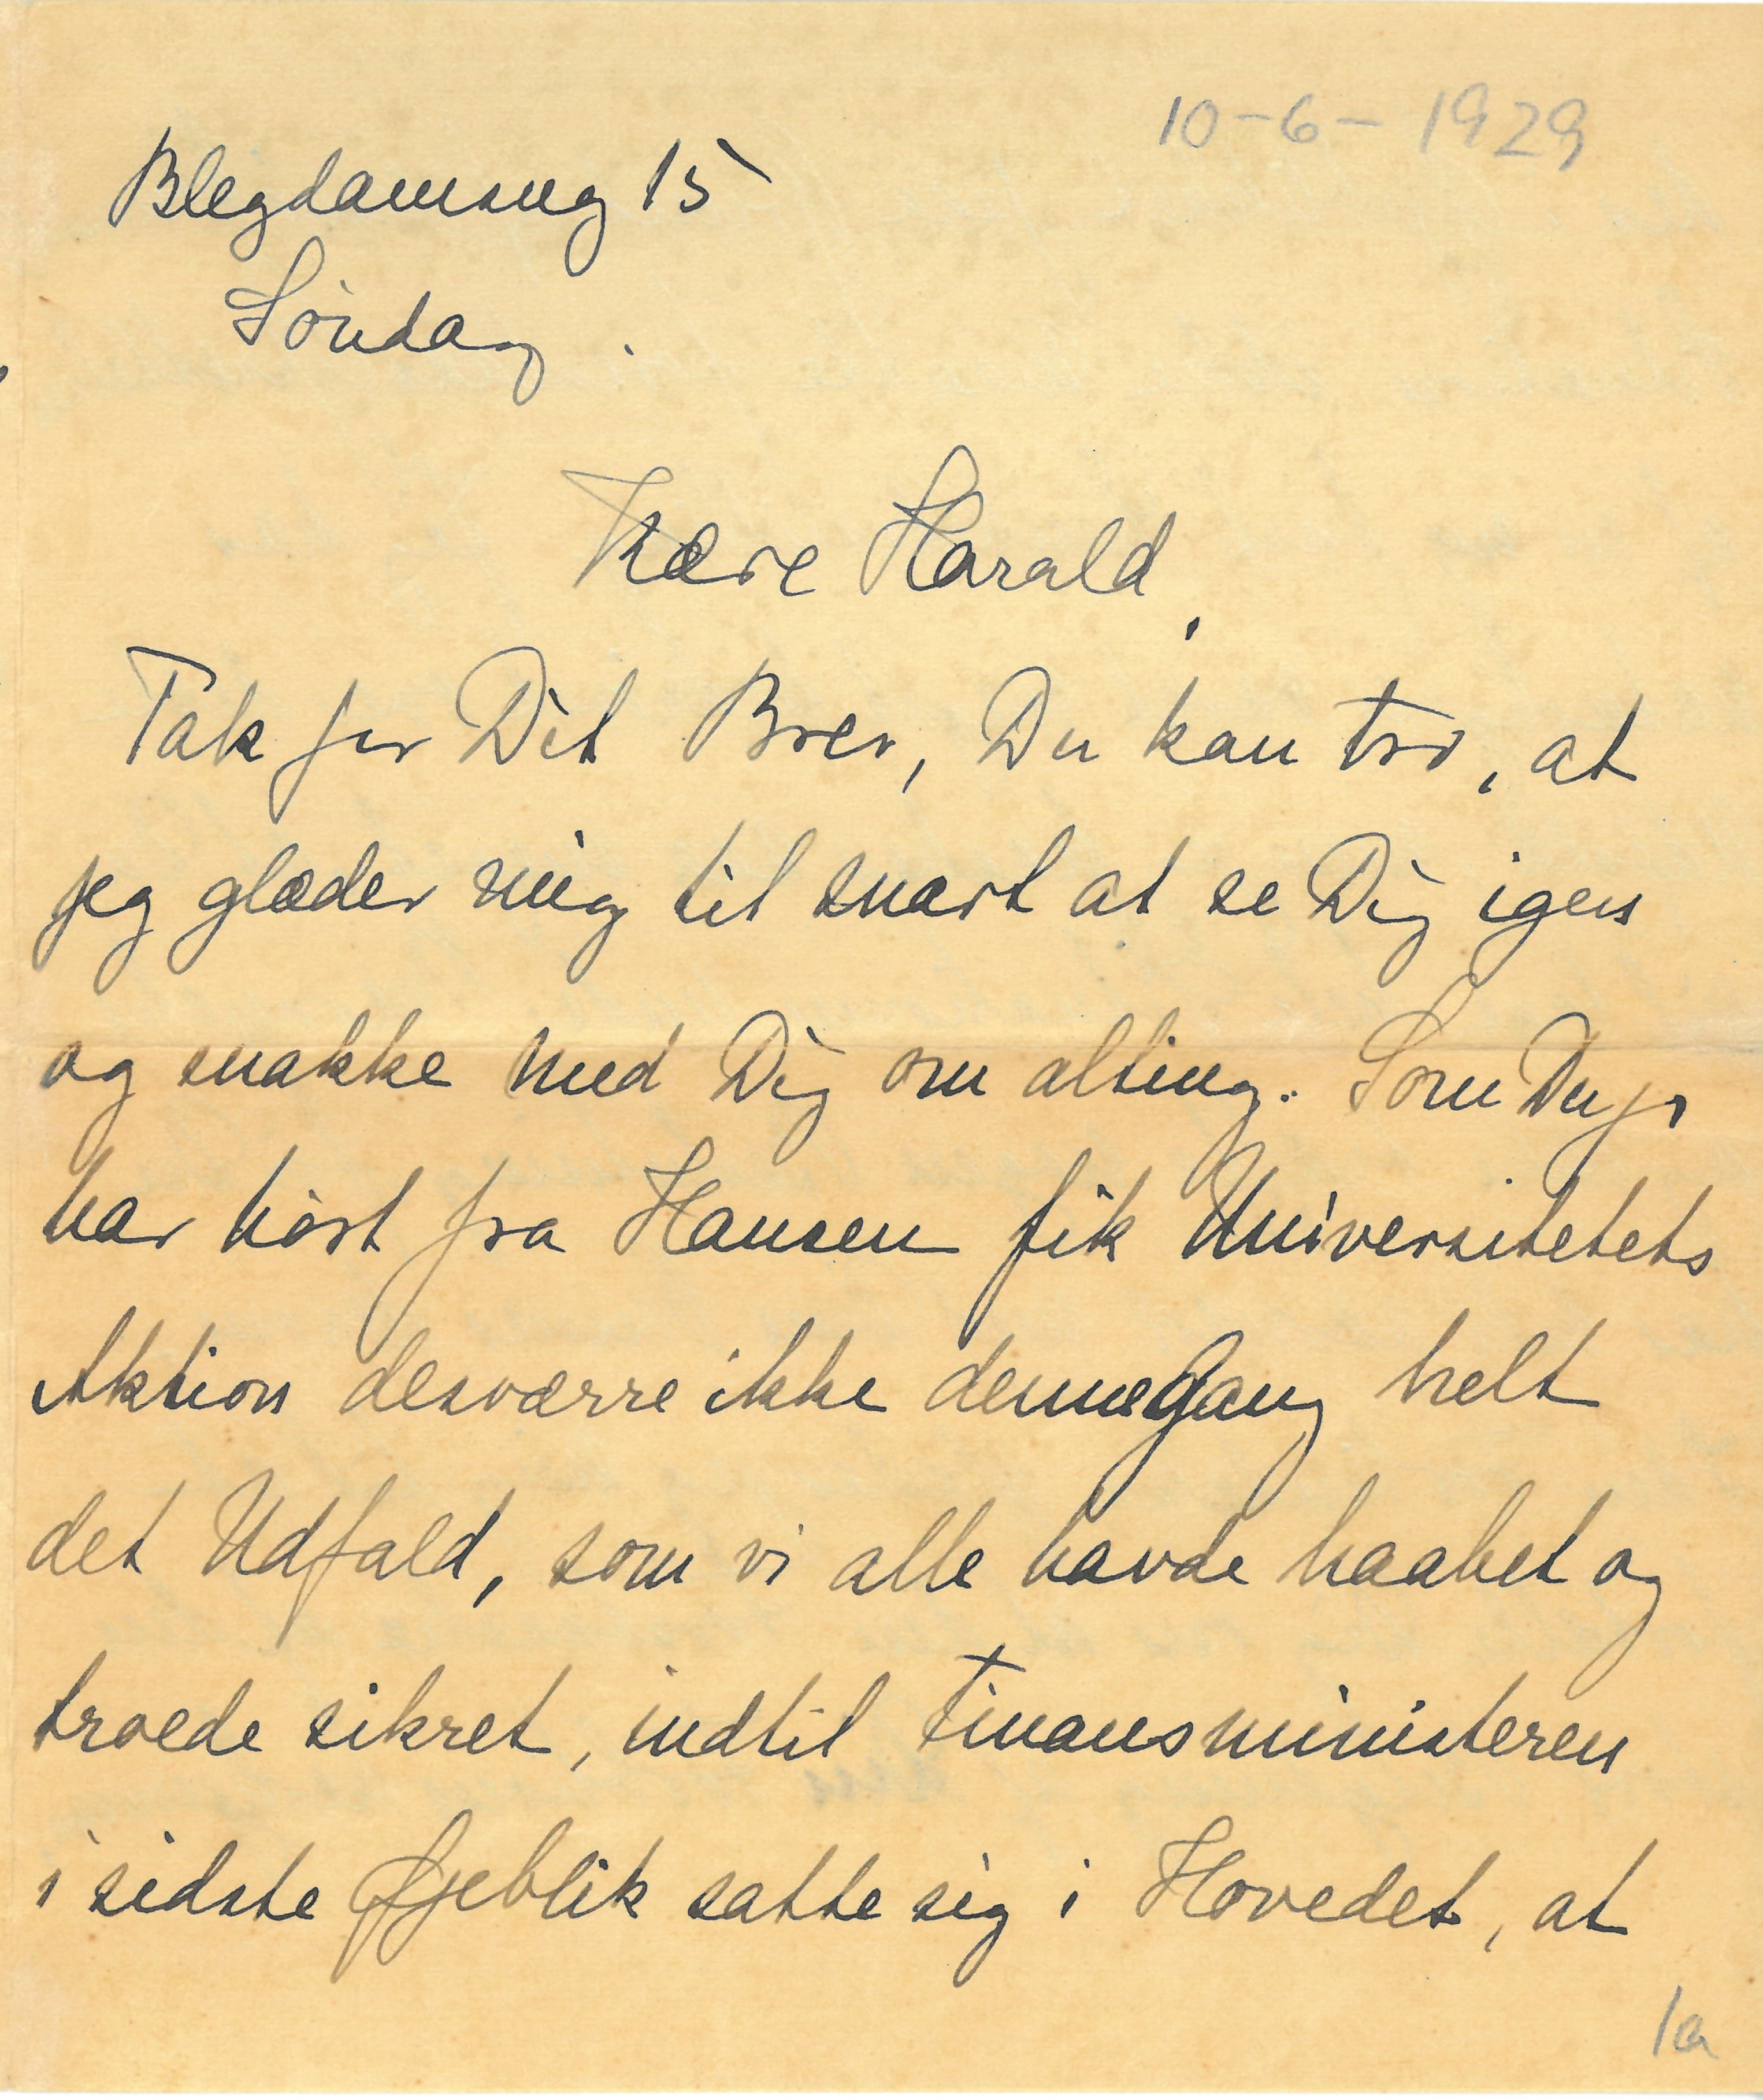 10-6-1929
Blegdamsvej 15
Søndag.
Kære Harald,
Tak for Dit Brev, Du kan tro, at
jeg glæder mig til snart at se Dig igen
og snakke med Dig om alting. Som Du jo
har hørt fra Hansen fik Universitetets
Aktion desværre ikke denne Gang helt
det Udfald, som vi alle havde haabet og
troede sikret, indtil Finansministeren
i sidste Øjeblik satte sig i Hovedet, at
1a